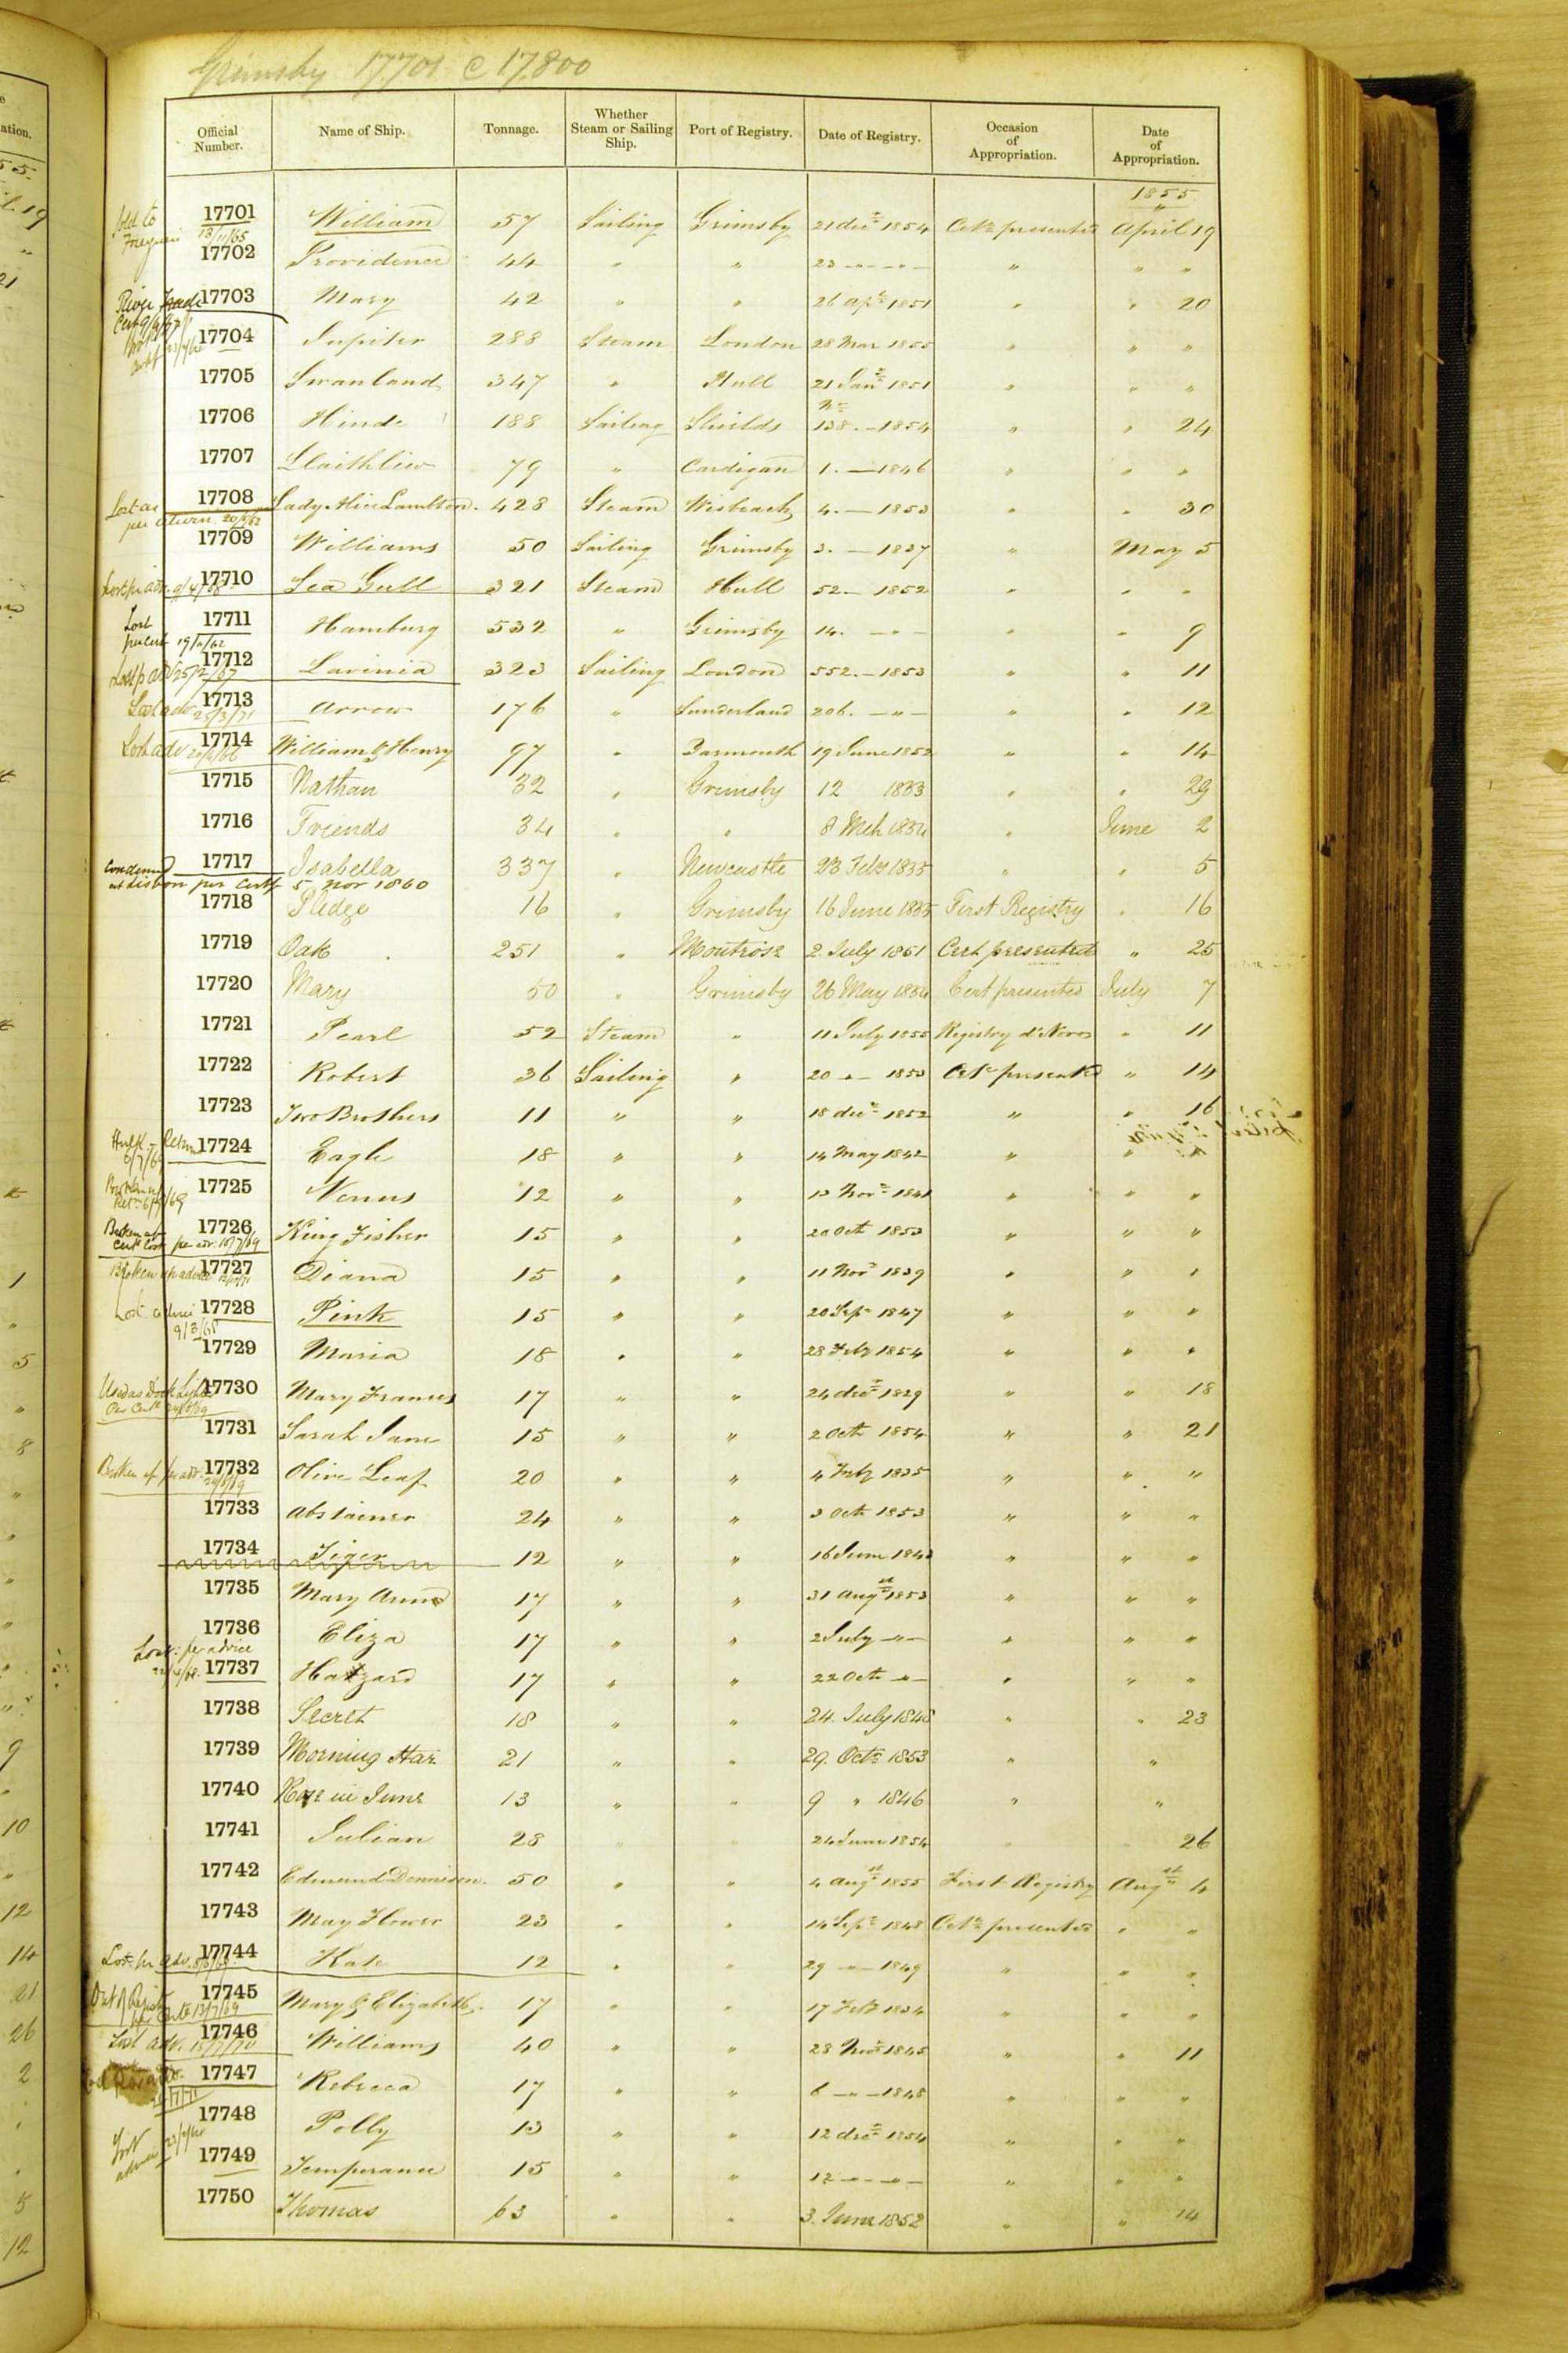 Grimsby 17701 @ 17800
Official Number. Name of Ship. Tonnage. Whether Steam or Sailing Ship. Port of Registry. Date of Registry. Occasion of Appropriation. Date of Appropriation.
1855
Sold to Foreigners 13/11/65 17701 William 57 Sailing Grimsby 21 decr 1854 Certe presented April 19
17702 Providence 44 " " 23 — " — " " "
River Trade 17703 Mary 42 " " 26 apl 1851 " " 20
17704 Jupiter 288 Steam London 28 Mar 1855 " " "
17705 Swanland 347 " Hull 21 Jany 1851 " " "
17706 Hinde 188 Sailing Shields No 138 . — 1854 " " 24
17707 Llaithliw 79 " Cardigan 1. — 1846 " " "
Lost as per return 20/2/62 17708 Lady Alice Lambton. 428 Steam Wisbeach 4. — 1853 " " 30
17709 Williams 50 Sailing Grimsby 3. — 1837 " May 5
17710 Sea Gull 321 Steam Hull 52 — 1852 " " "
Lost per cert 17711 Hamburg 532 " Grimsby 14. — " — " " 9
17712 Lavinia 323 Sailing London 552. — 1853 " " 11
Lost adv 25/3/71 17713 Arrow 176 " Sunderland 206. — " — " " 12
Lost adv 17714 William & Henry 97 " Yarmouth 19 June 1852 " " 14
17715 Nathan 32 " Grimsby 12 1833 " " 29
17716 Friends 34 " " 8 Mch 1834 " June 2
17717 Isabella 337 " Newcastle 23 Feby 1835 " " 5
Condemned at Lisbon per Certf 5 Nov 1860
17718 Pledge 16 " Grimsby 16 June 1855 First Registry " 16
17719 Oak 251 " Montrose 2 July 1851 Cert presented " 25
17720 Mary 50 " Grimsby 26 May 1834 Cert presented July 7
17721 Pearl 52 Steam " 11 July 1855 Registry d'Novo " 11
17722 Robert 36 Sailing " 20 " — 1853 Certe presented " 14
17723 Two Brothers 11 " " 18 decr 1852 " " 16
17724 Eagle 18 " " 14 May 1842 " " "
17725 Venus 12 " " 13 Novr 1841 " " "
17726 King Fisher 15 " " 20 Oct 1853 " " "
Broken up advice 17727 Diana 15 " " 11 Novr 1839 " " "
Lost advice 9/3/68 17728 Pink 15 " " 20 Sepr 1847 " " "
17729 Maria 18 " " 28 Feby 1854 " " "
Used as Dock Lighter Per Certe 17730 Mary Frances 17 " " 24 decr 1829 " " 18
17731 Sarah Jane 15 " " 2 Oct 1854 " " 21
Broken up per adv. 17732 Olive Leaf 20 " " 4 Feby 1835 " " "
17733 Abstainer 24 " " 3 Oct 1853 " " "
17734 Tiger 12 " " 16 June 1843 " " "
17735 Mary Anne 17 " " 31 Augst 1853 " " "
17736 Eliza 17 " " 2 July — " — " " "
Lost: per advice 17737 Hazard 17 " " 22 Oct — " — " " "
17738 Secret 18 " " 24. July 1848 " " 23
17739 Morning Star 21 " " 29. Octr 1853 "
17740 Rose in June 13 " " 9 " 1846 " "
17741 Julian 28 " " 24 June 1854 " 26
17742 Edmund Dennison. 50 " " 4 Augst 1855 First Registry Augst 4
17743 May Flower 23 " " 14 Sepr 1848 Certe presented " "
17744 Kate 12 " " 29 — " — 1849 " " "
17745 Mary & Elizabeth. 17 " " 17 Feby 1834 " " "
Lost adv. 15/7/70 17746 Williams 40 " " 28 Novr 1845 " " 11
17747 Rebecca 17 " " 6 — " — 1848 " " "
17748 Polly 13 " " 12 decr 1854 " " "
17749 Temperance 15 " " 12 — " — " — " " "
17750 Thomas 63 " " 3. June 1852 " " 14